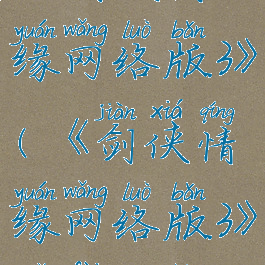 yuán wǎng luò bǎn
缘网络版3》
jiàn xiá qíng
(《剑侠情
yuán wǎng luò bǎn
缘网络版3》